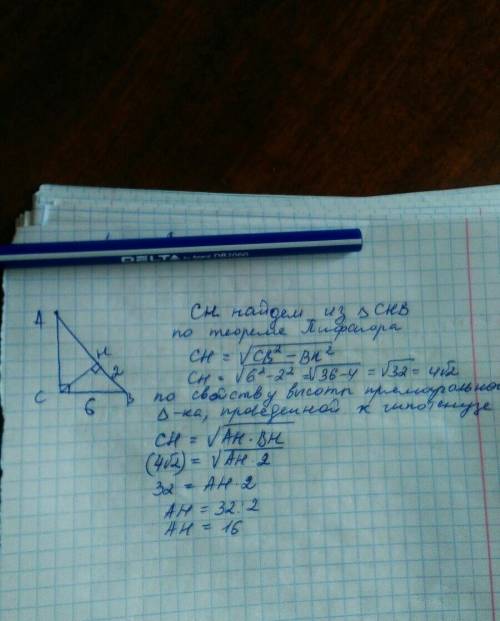 DELTA
A
H
2
C
6
B
CH найдем из Δ CHB
по теореме Пифагора
CH = √CB² − BH²
CH = √6² − 2² = √36 − 4 = √32 = 4√2
по свойству высоты прямоугольного
Δ-ка, проведенной к гипотенузе
CH = √AH · BH
(4√2) = √AH · 2
32 = AH · 2
AH = 32 : 2
AH = 16